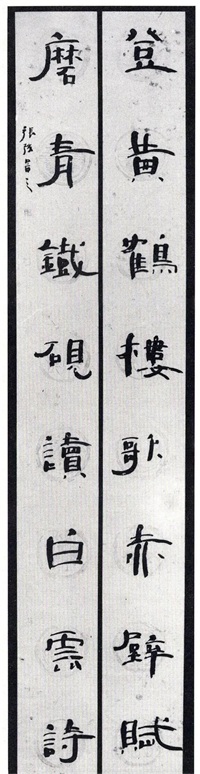 登黄鶴樓歌赤壁賦
磨青鐵硯讀白雲詩